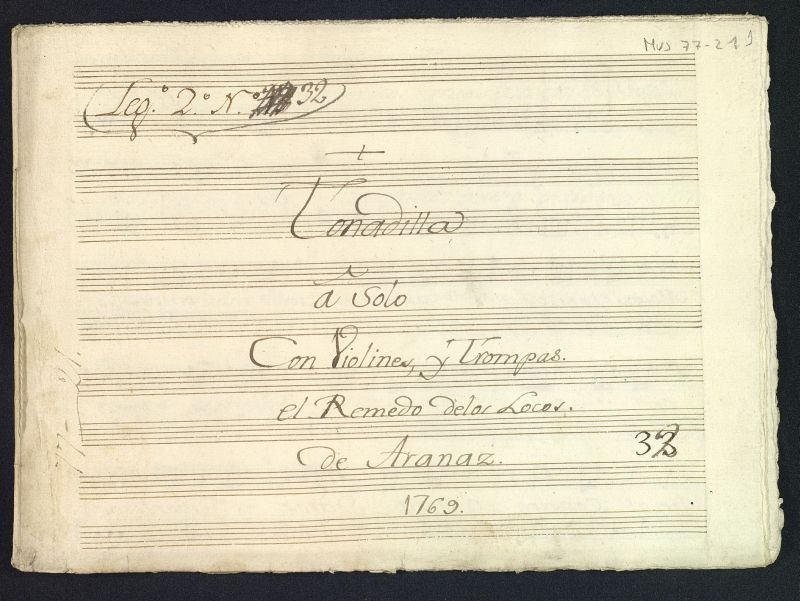 MUS 77-2
Leg.º 2.º N.º 32
Tonadilla
a Solo
Con Violines, y Trompas.
el Remedo delos Locos.
de Aranaz.
1769.